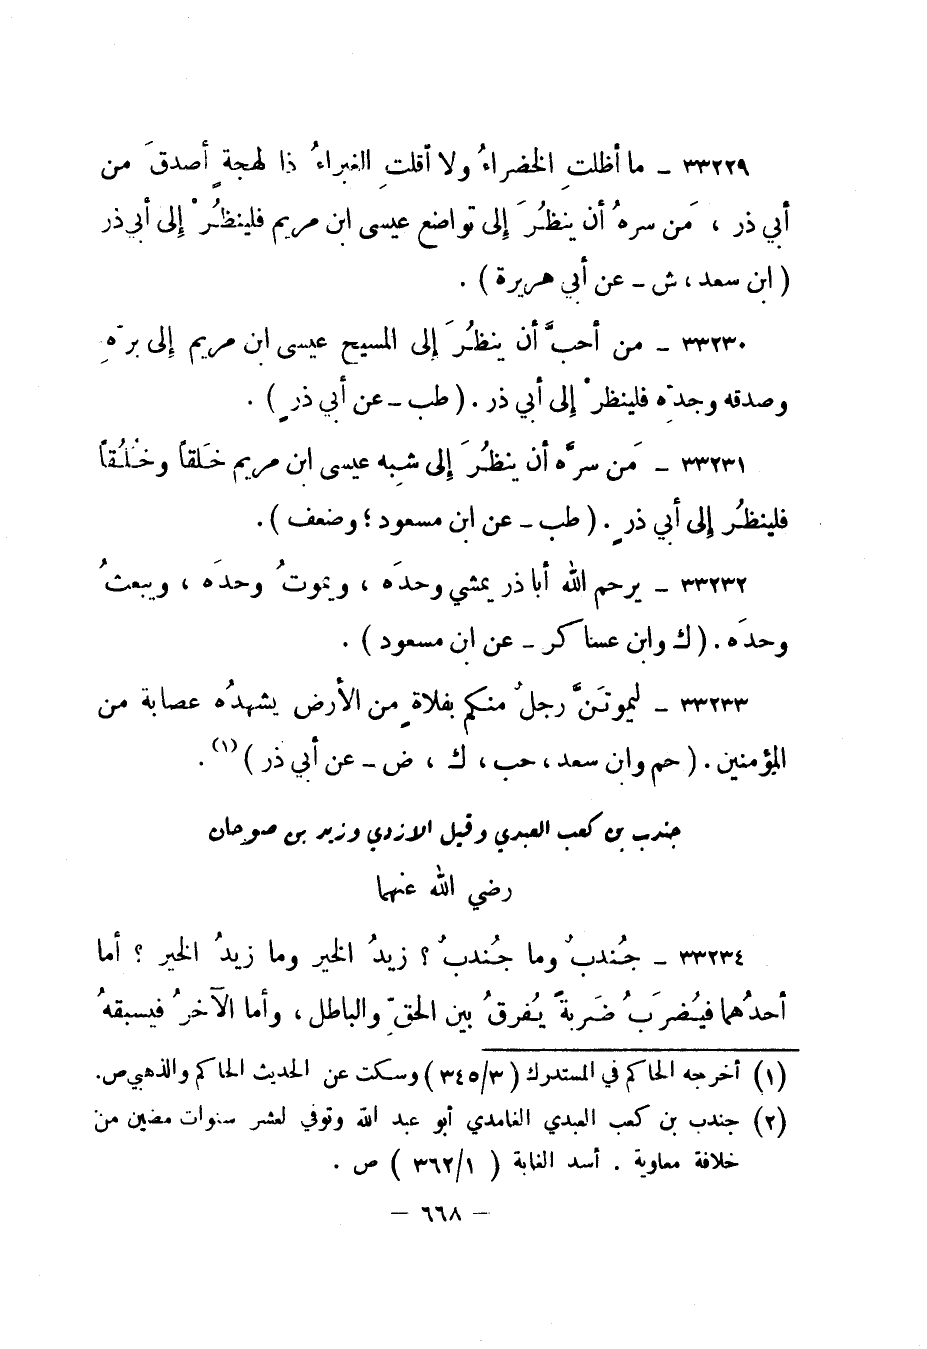 ٣٣٢٢٩ ـ ما أظلتِ الخضراءُ ولا أقلتِ الغبراءُ ذا لهجةٍ أصدقَ من
أبي ذر ، مَن سرهُ أن ينظُرَ إلى تواضع عيسى ابن مريم فلينظُرْ إلى أبي ذر
( ابن سعد ، ش ـ عن أبي هريرة ) .
٣٣٢٣٠ ـ من أحبَّ أن ينظُرَ إلى المسيح عيسى ابن مريم إلى برّهِ
وصدقه وجدّه فلينظرْ إلى أبي ذر . ( طب ـ عن أبي ذرٍ ) .
٣٣٢٣١ ـ مَن سرَّه أن ينظُرَ إلى شبه عيسى ابن مريم خَلقاً وخُلُقاً
فلينظُر إلى أبي ذرٍ . ( طب ـ عن ابن مسعود ؛ وضعف ) .
٣٣٢٣٢ ـ يرحم الله أبا ذر يمشي وحدَه ، ويموتُ وحدَه ، ويبعثُ
وحدَه . ( ك وابن عساكر ـ عن ابن مسعود ) .
٣٣٢٣٣ ـ ليموتَنَّ رجلٌ منكم بفلاةٍ من الأرض يشهدُه عصابة من
المؤمنين . ( حم وابن سعد ، حب ، ك ، ض ـ عن أبي ذر )(١) .
جندب بن كعب العبدي وقيل الازدي وزيد بن صوحان
رضي الله عنهما
٣٣٢٣٤ ـ جُندبٌ وما جُندبٌ ؟ زيدُ الخير وما زيدُ الخير ؟ أما
أحدُهما فيُضرَبُ ضَربةً يُفرقُ بين الحقّ والباطل ، وأما الآخرُ فيسبقهُ
(١) أخرجه الحاكم في المستدرك ( ٣٤٥/٣ ) وسكت عن الحديث الحاكم والذهبي ص.
(٢) جندب بن كعب العبدي الغامدي أبو عبد الله وتوفي لعشر سنوات مضين من
خلافة معاوية . أسد الغابة ( ٣٦٢/١ ) ص .
— ٦٦٨ —